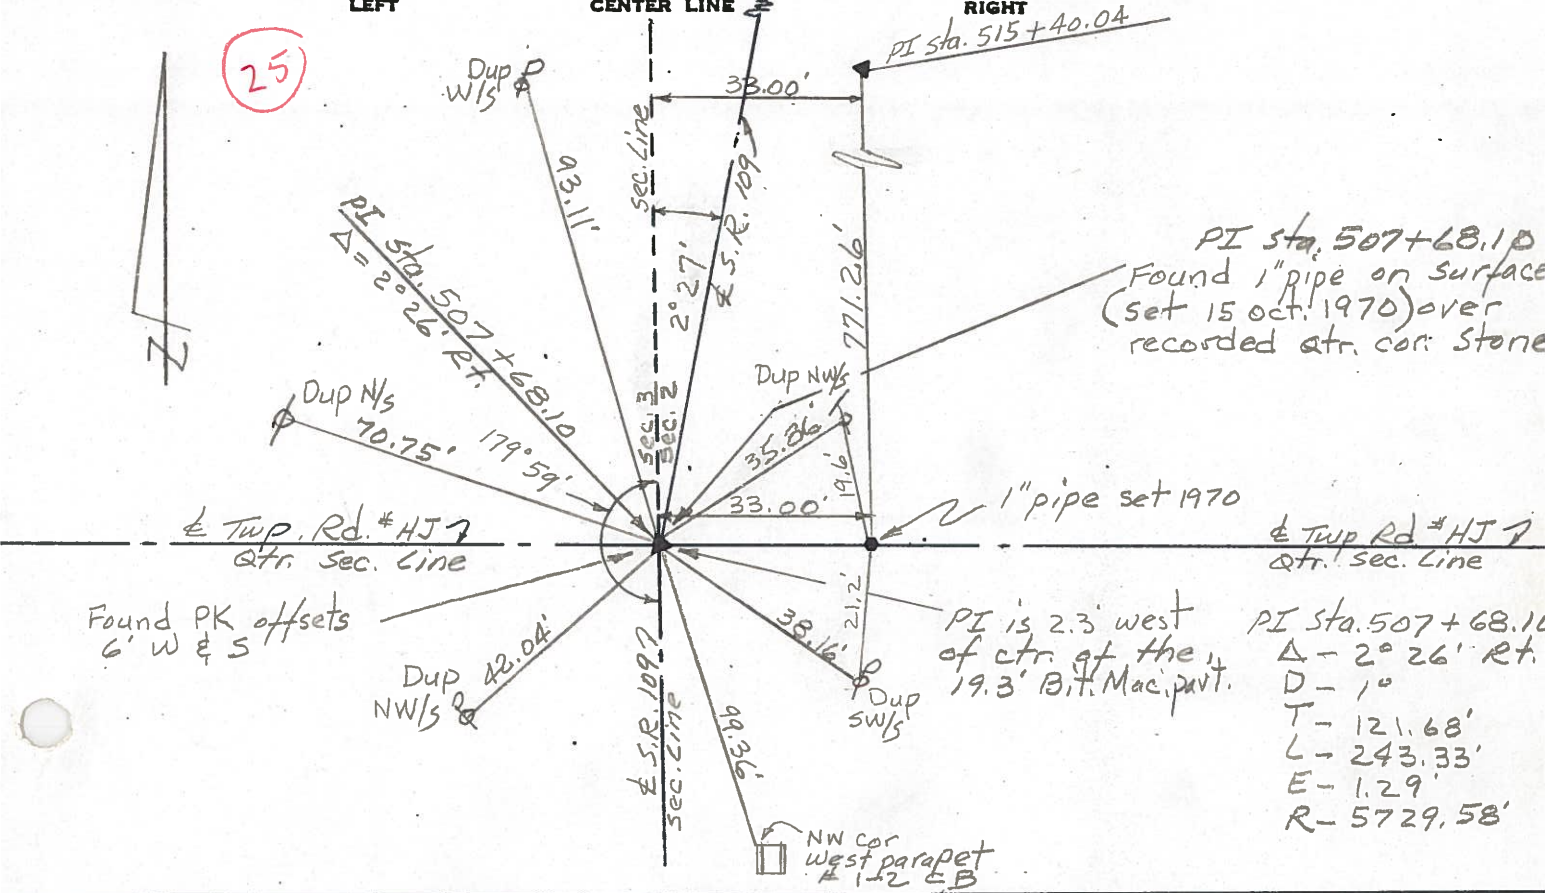 LEFT
CENTER LINE
RIGHT
25
PI Sta. 515+40.04
Dup
W/S
33.00'
sec. Line
93.11'
℄ S.R. 109
2°27'
PI Sta. 507+68.10
Δ = 2°26' Rt.
771.26'
PI Sta. 507+68.10
Found 1" pipe on surface
(set 15 Oct. 1970) over
recorded qtr. cor. Stone
Dup NW/S
Dup N/S
70.75'
179°59'
sec. 3
sec. 2
35.86'
19.6'
33.00'
1" pipe set 1970
℄ Twp. Rd. #HJ
Qtr. Sec. Line
℄ Twp Rd #HJ
Qtr. Sec. Line
Found PK offsets
6' W & S
42.04'
Dup
NW/S
℄ S.R. 109
sec. Line
99.36'
38.16'
21.2'
Dup
SW/S
PI is 2.3' west
of ctr. of the
19.3' Bit. Mac. pvt.
PI Sta. 507+68.10
Δ - 2°26' Rt.
D - 1°
T - 121.68'
L - 243.33'
E - 1.29'
R - 5729.58'
NW cor
west parapet
CB
Z